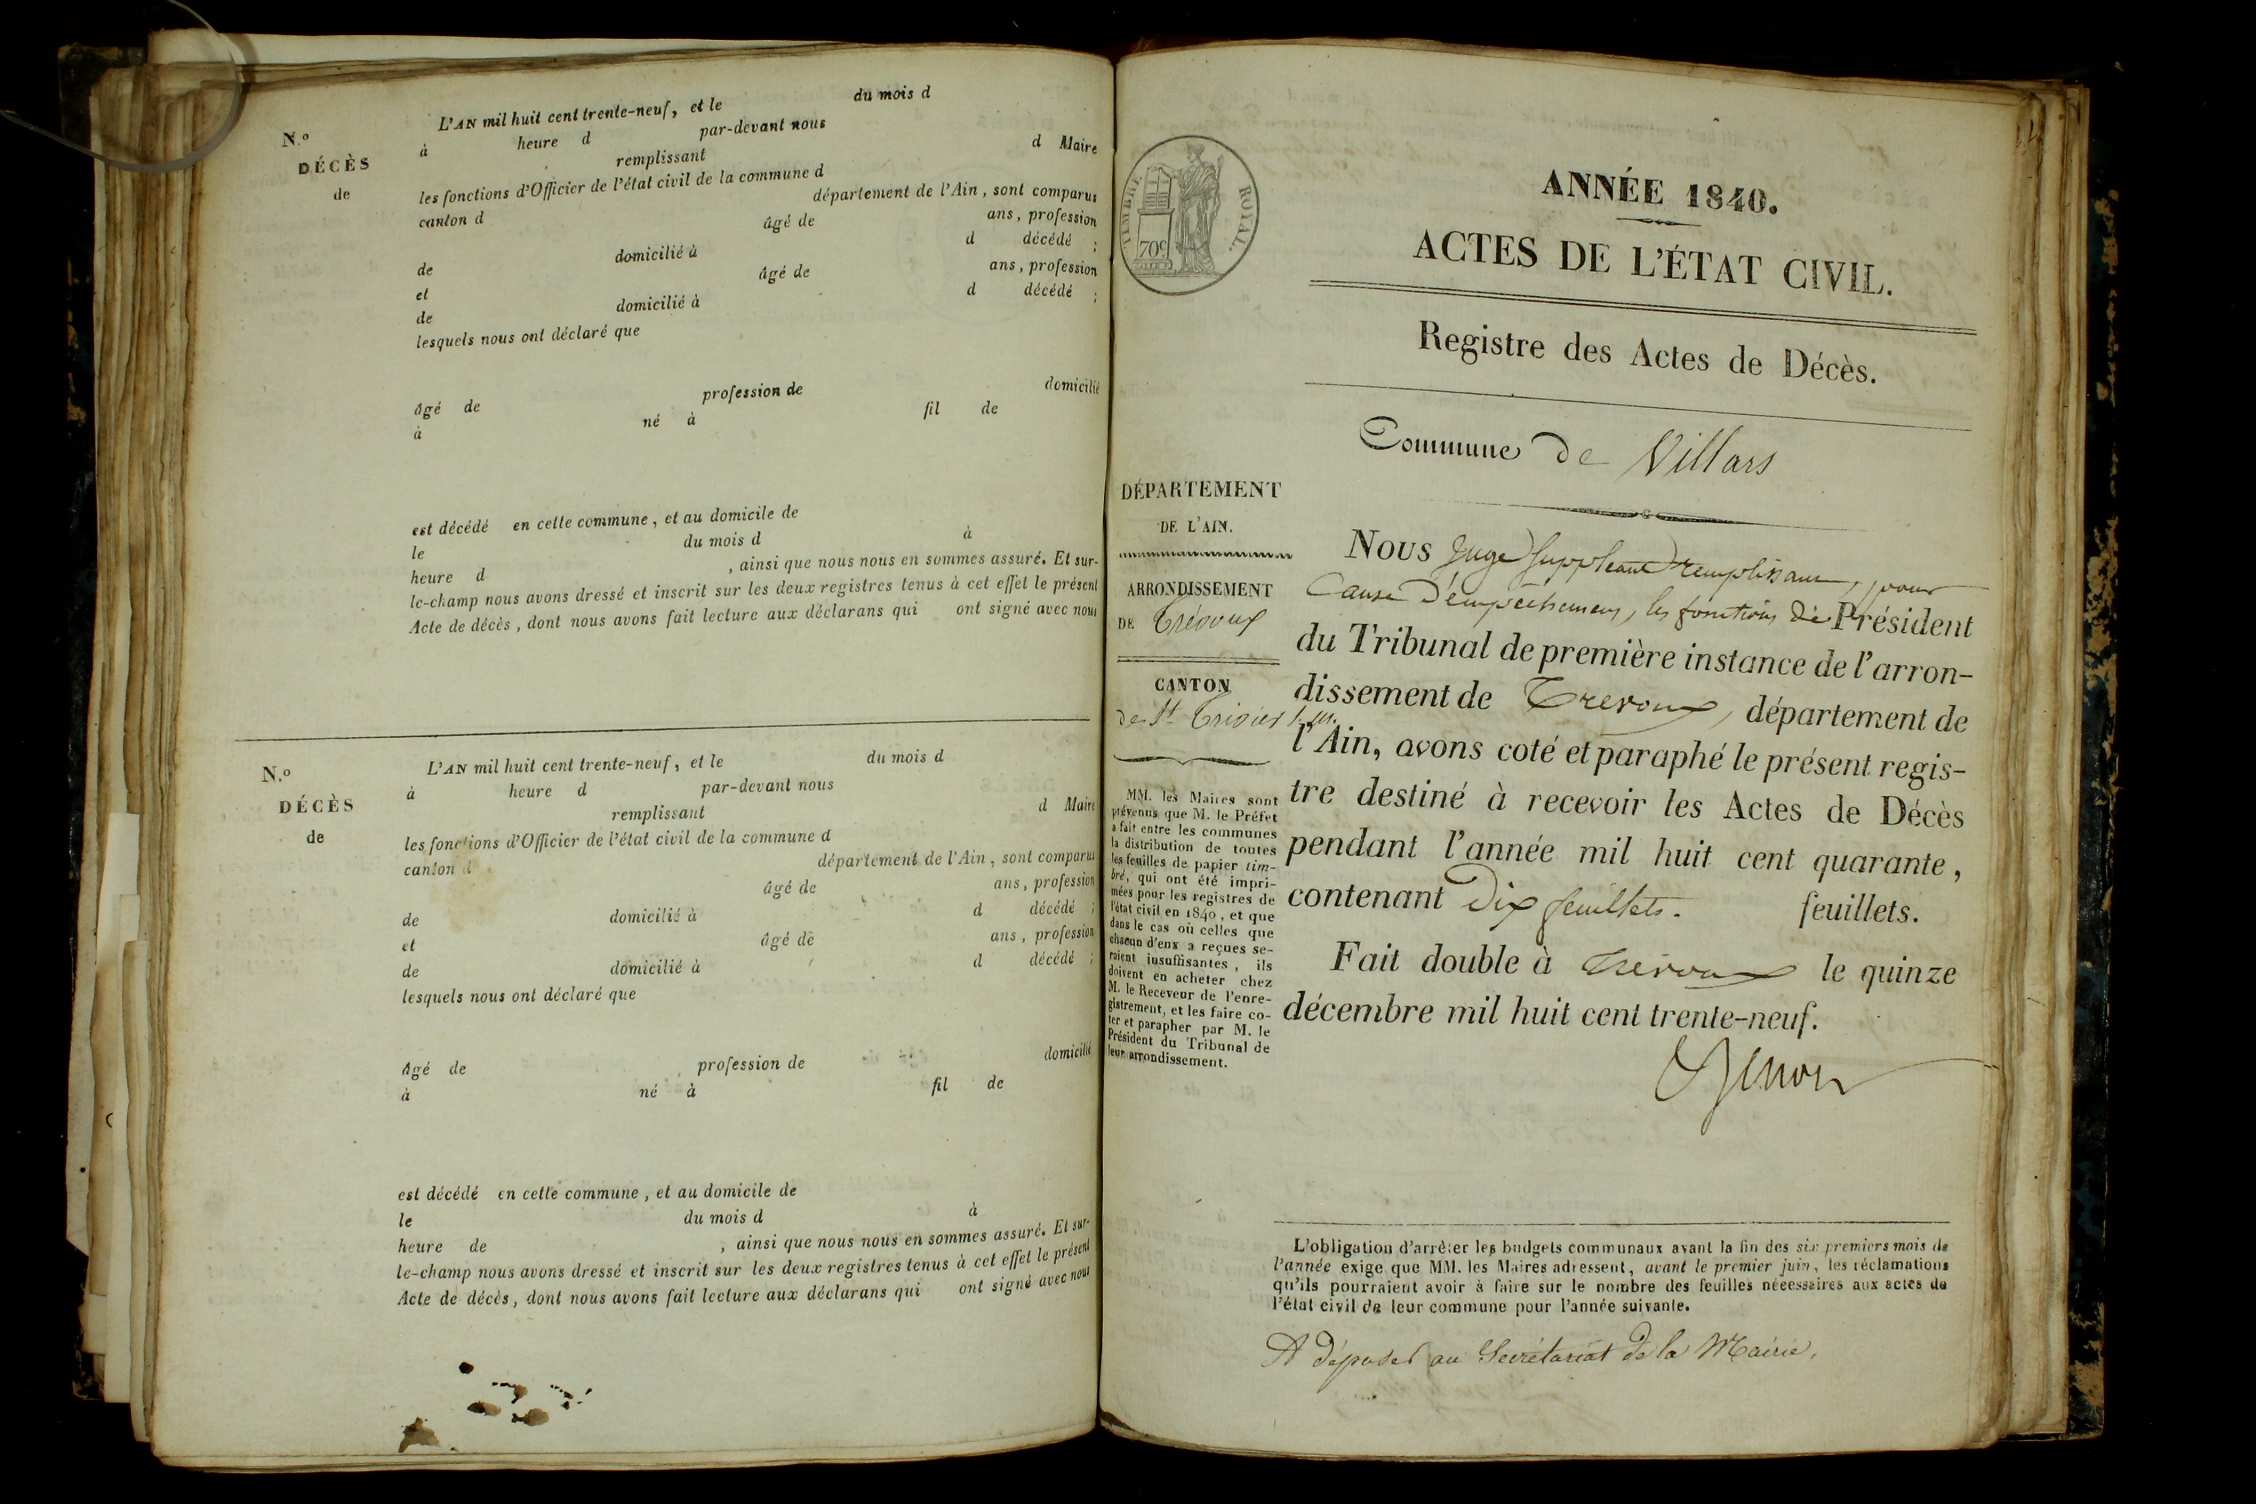 N.º
DÉCÈS
de
L'AN mil huit cent trente-neuf, et le du mois d
à heure d par-devant nous
remplissant d Maire
les fonctions d'Officier de l'état civil de la commune d
canton d département de l'Ain, sont comparus
âgé de ans, profession
de domicilié à d décédé ;
et âgé de ans, profession
de domicilié à d décédé ;
lesquels nous ont déclaré que
âgé de profession de domicilié
à né à fil de
est décédé en cette commune, et au domicile de
le du mois d à
heure d , ainsi que nous nous en sommes assuré. Et sur-
le-champ nous avons dressé et inscrit sur les deux registres tenus à cet effet le présent
Acte de décès, dont nous avons fait lecture aux déclarans qui ont signé avec nous
N.º
DÉCÈS
de
L'AN mil huit cent trente-neuf, et le du mois d
à heure d par-devant nous
remplissant d Maire
les fonctions d'Officier de l'état civil de la commune d
canton d département de l'Ain, sont comparus
âgé de ans, profession
de domicilié à d décédé ;
et âgé de ans, profession
de domicilié à d décédé ;
lesquels nous ont déclaré que
âgé de profession de domicilié
à né à fil de
est décédé en cette commune, et au domicile de
le du mois d à
heure de , ainsi que nous nous en sommes assuré. Et sur-
le-champ nous avons dressé et inscrit sur les deux registres tenus à cet effet le présent
Acte de décès, dont nous avons fait lecture aux déclarans qui ont signé avec nous
TIMBRE ROYAL.
70c
ANNÉE 1840.
ACTES DE L'ÉTAT CIVIL.
Registre des Actes de Décès.
Commune de Villars
DÉPARTEMENT
DE L'AIN.
ARRONDISSEMENT
DE Trévoux
CANTON
de St Trivier s. m.
MM. les Maires sont
prévenus que M. le Préfet
a fait entre les communes
la distribution de toutes
les feuilles de papier tim-
bré, qui ont été impri-
mées pour les registres de
l'état civil en 1840, et que
dans le cas où celles que
chacun d'eux a reçues se-
raient insuffisantes, ils
doivent en acheter chez
M. le Receveur de l'enre-
gistrement, et les faire co-
ter et parapher par M. le
Président du Tribunal de
leur arrondissement.
Nous Juge suppléant remplissant, pour
Cause d'empêchement, les fonctions de Président
du Tribunal de première instance de l'arron-
dissement de Trevoux, département de
l'Ain, avons coté et paraphé le présent regis-
tre destiné à recevoir les Actes de Décès
pendant l'année mil huit cent quarante,
contenant Dix feuillets. feuillets.
Fait double à Trévoux le quinze
décembre mil huit cent trente-neuf.
L'obligation d'arrêter les budgets communaux avant la fin des six premiers mois de
l'année exige que MM. les Maires adressent, avant le premier juin, les réclamations
qu'ils pourraient avoir à faire sur le nombre des feuilles nécessaires aux actes de
l'état civil de leur commune pour l'année suivante.
A déposer au Secrétariat de la Mairie.